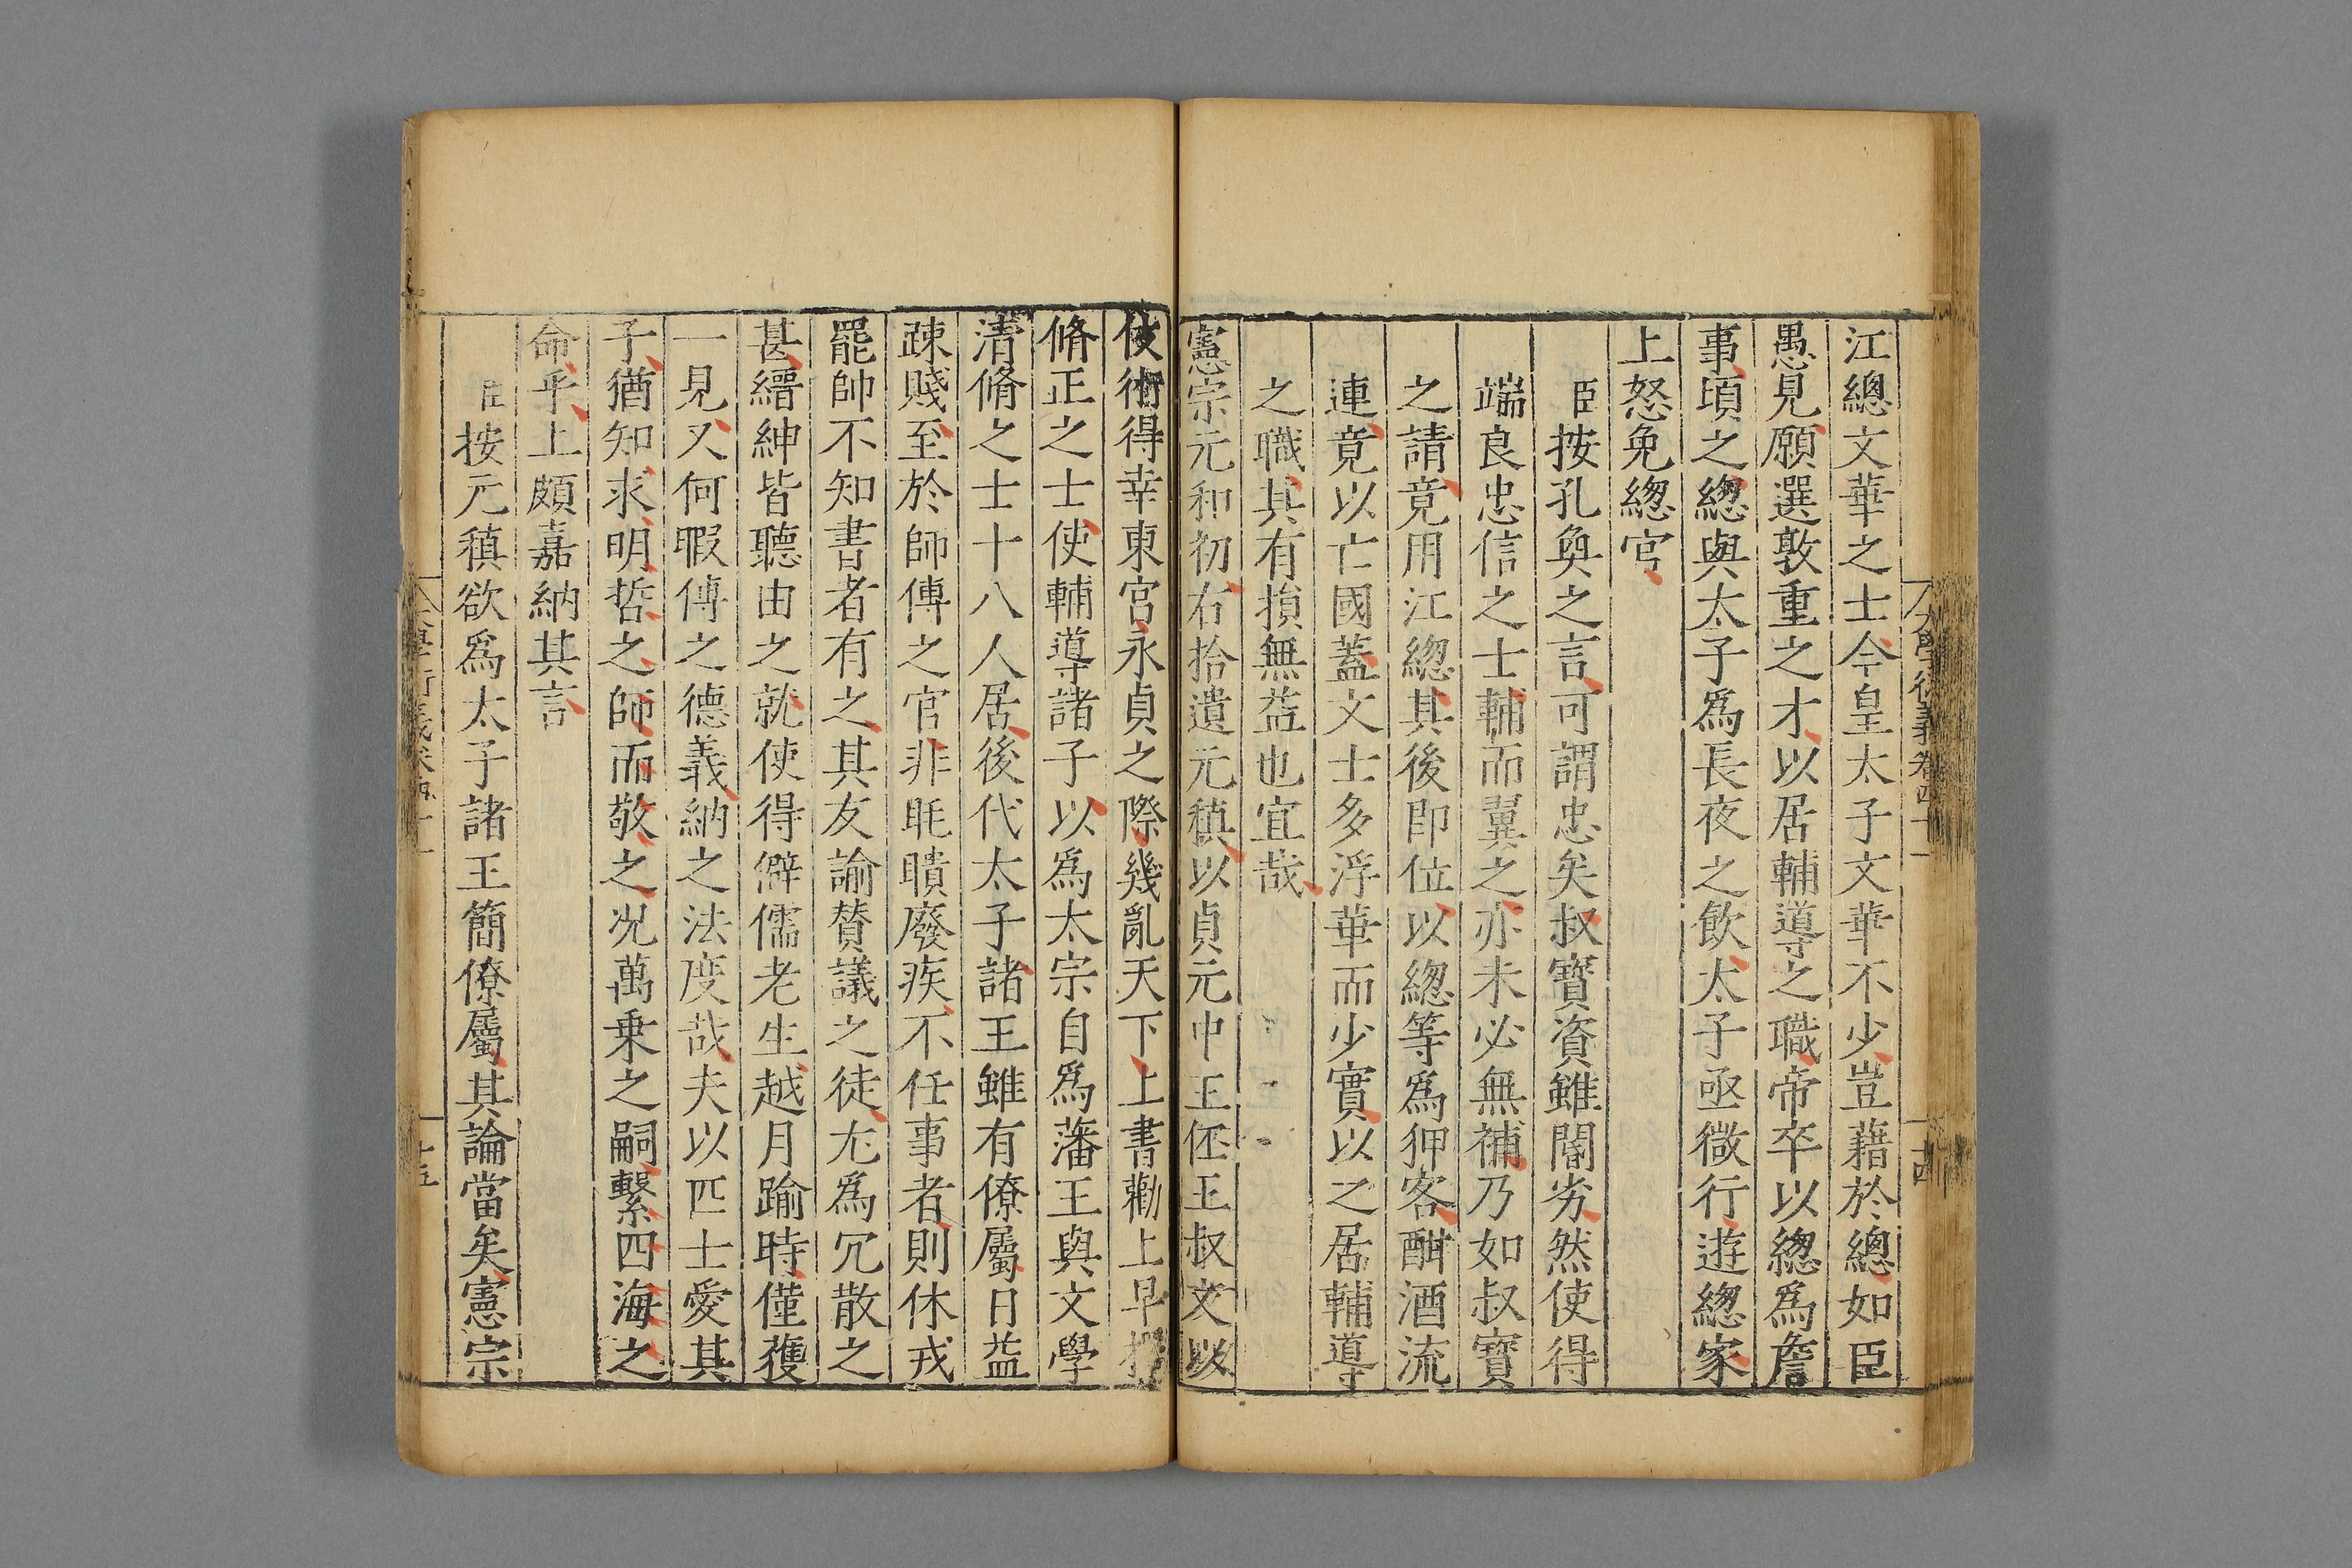 大學衍義卷四十一
十四
江總文華之士今皇太子文華不少豈藉於總如臣
愚見願選敦重之才以居輔導之職帝卒以總爲詹
事頃之總與太子爲長夜之飲太子亟微行遊總家
上怒免總官
臣按孔奐之言可謂忠矣叔寶資雖闇劣然使得
端良忠信之士輔而翼之亦未必無補乃如叔寶
之請竟用江總其後即位以總等爲狎客酣酒流
連竟以亡國蓋文士多浮華而少實以之居輔導
之職其有損無益也宜哉
憲宗元和初右拾遺元稹以貞元中王伾王叔文以
伎術得幸東宮永貞之際幾亂天下上書勸上早擇
脩正之士使輔導諸子以爲太宗自爲藩王與文學
清脩之士十八人居後代太子諸王雖有僚屬日益
疎賤至於師傅之官非眊聵廢疾不任事者則休戎
罷帥不知書者有之其友諭贊議之徒尤爲冗散之
甚縉紳皆聽由之就使得僻儒老生越月踰時僅獲
一見又何暇傅之德義納之法度哉夫以匹士愛其
子猶知求明哲之師而敬之况萬乗之嗣繫四海之
命乎上頗嘉納其言
臣按元稹欲爲太子諸王簡僚屬其論當矣憲宗
十五